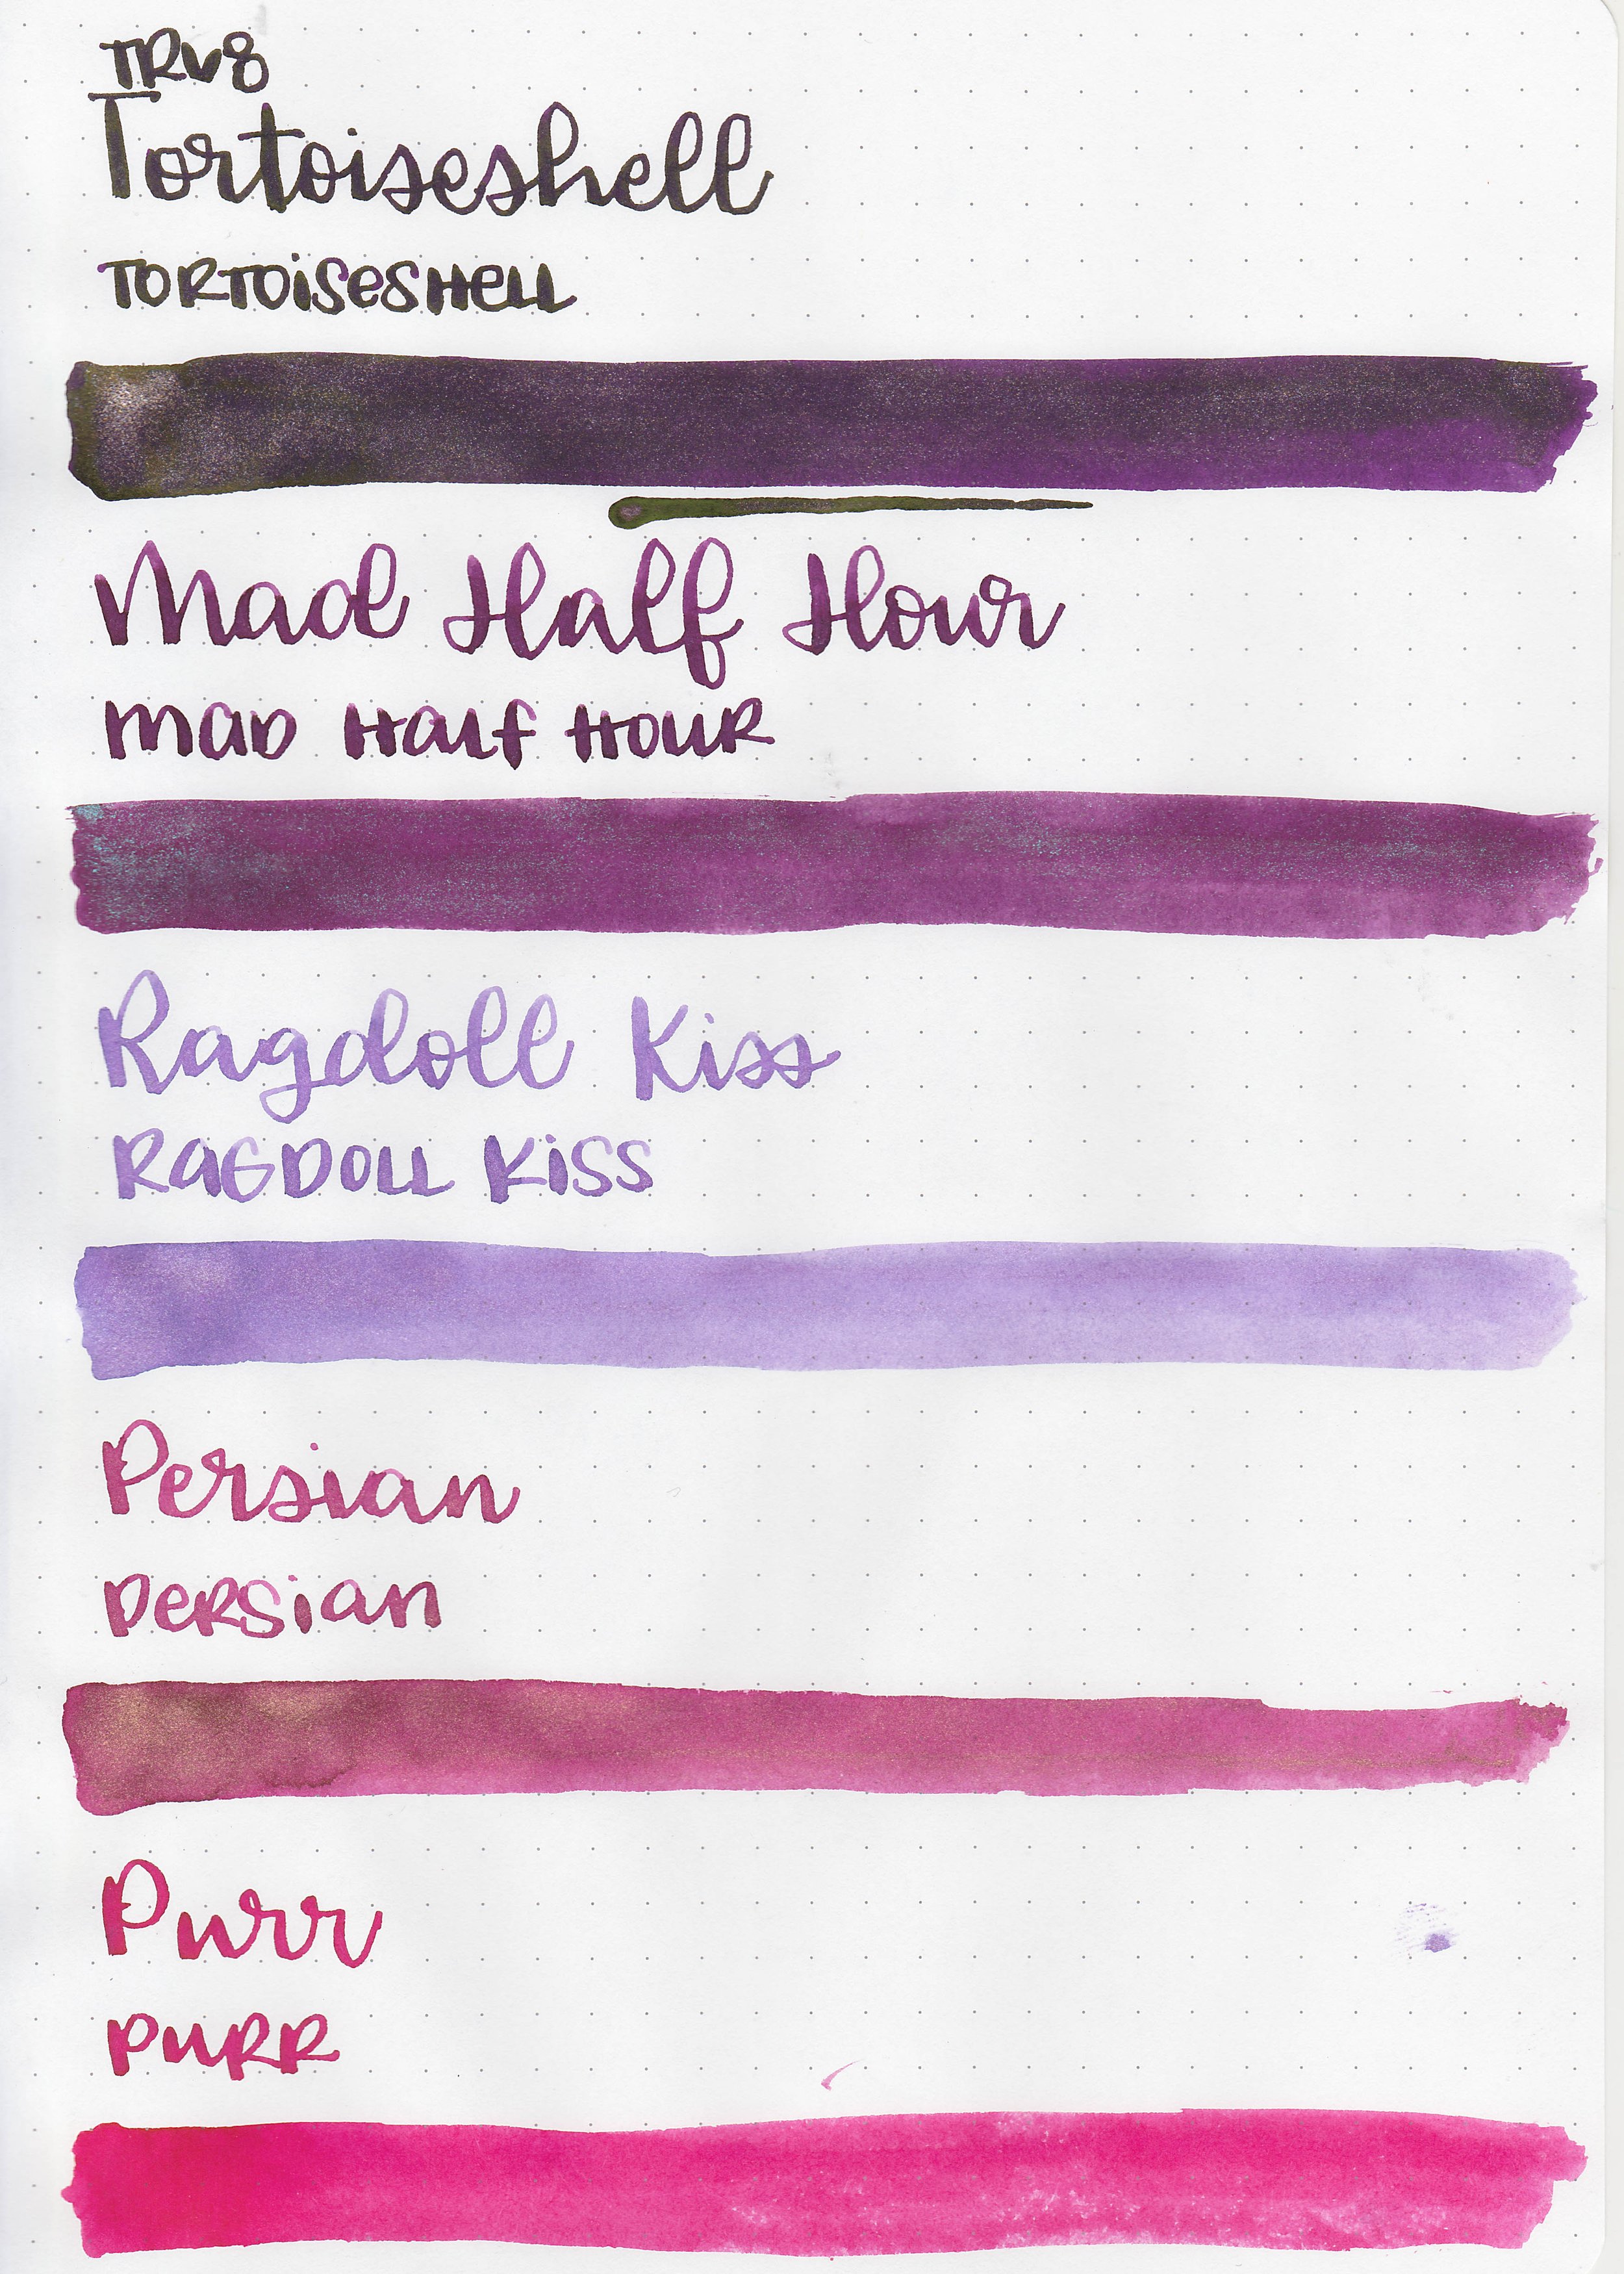 TRV8
Tortoiseshell
TORTOiSESHELL
Mad Half Hour
MAD HALF HOUR
Ragdoll Kiss
RAGDOLL KiSS
Persian
PERSiAN
Purr
PURR